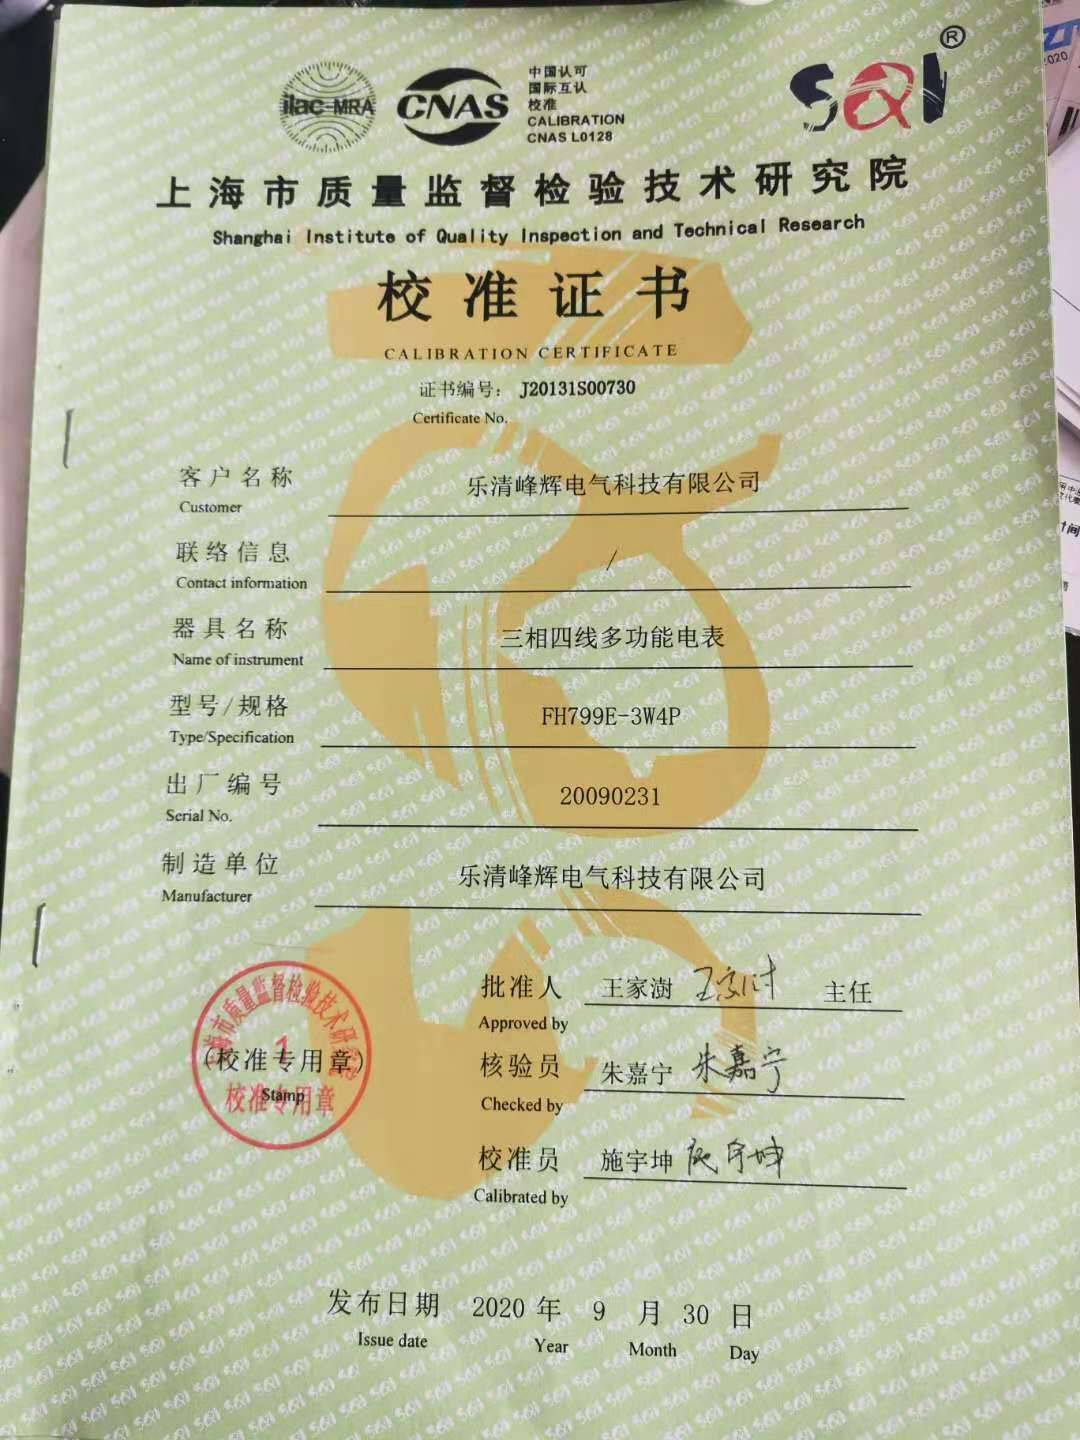 ilac-MRA
CNAS
中国认可
国际互认
校准
CALIBRATION
CNAS L0128
SQI®
上海市质量监督检验技术研究院
Shanghai Institute of Quality Inspection and Technical Research
校准证书
CALIBRATION CERTIFICATE
证书编号: J20131S00730
Certificate No.
客户名称 乐清峰辉电气科技有限公司
Customer
联络信息 /
Contact information
器具名称 三相四线多功能电表
Name of instrument
型号/规格 FH799E-3W4P
Type/Specification
出厂编号 20090231
Serial No.
制造单位 乐清峰辉电气科技有限公司
Manufacturer
批准人 王家澍 王家澍 主任
Approved by
核验员 朱嘉宁 朱嘉宁
Checked by
校准员 施宇坤 施宇坤
Calibrated by
上海市质量监督检验技术研究院
1
(校准专用章)
Stamp
校准专用章
发布日期 2020 年 9 月 30 日
Issue date Year Month Day